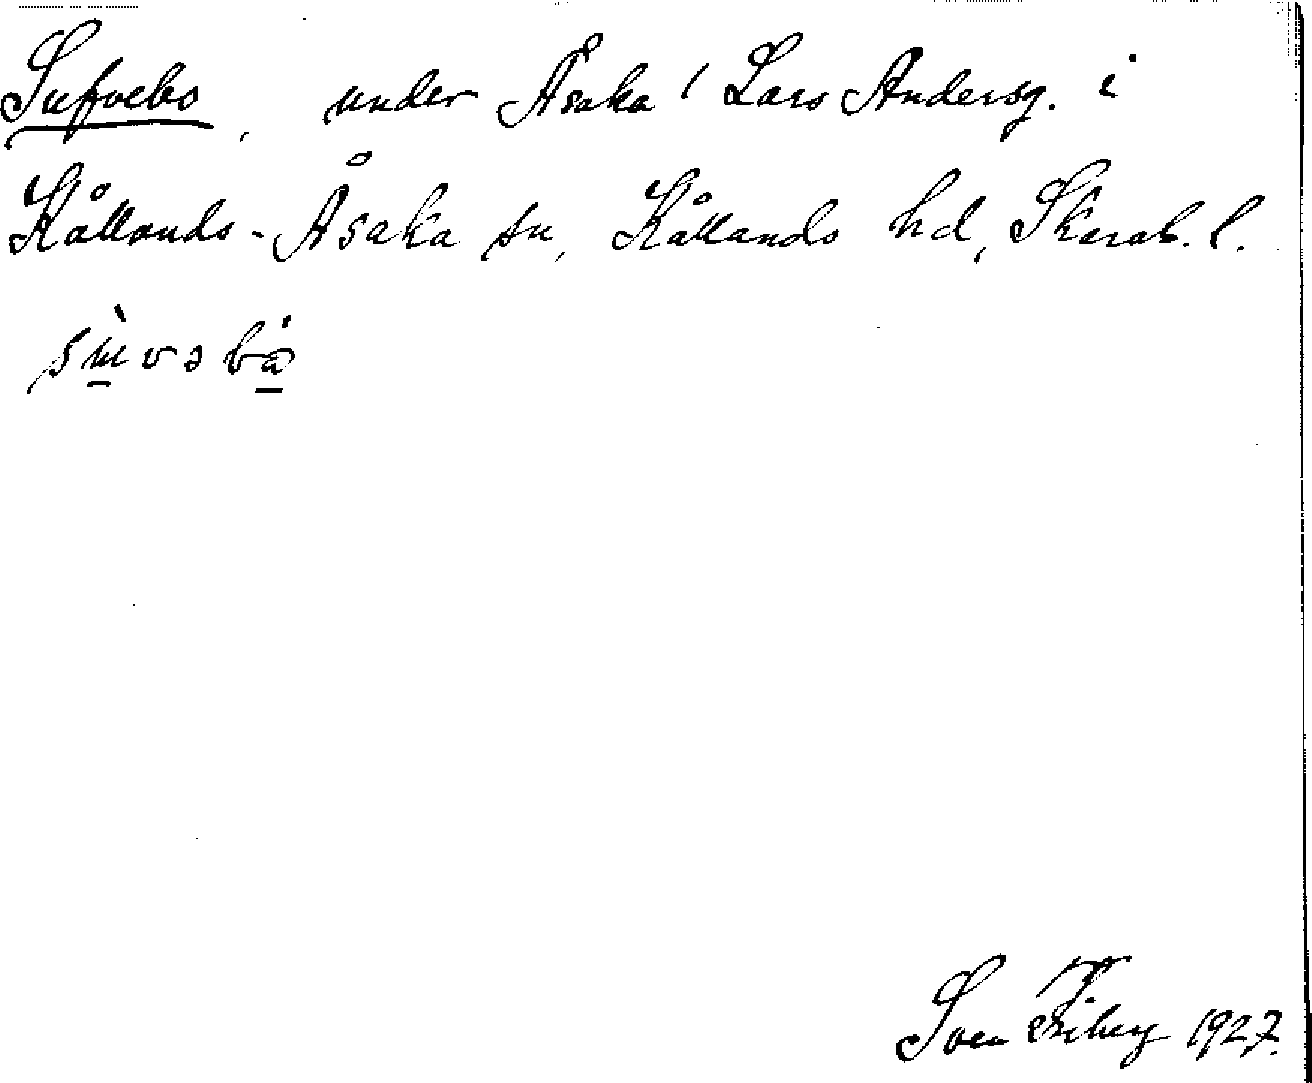 Sufvebo, under Åsaka / Lars Andersg. i
Kållands-Åsaka sn, Kållands hd, Skarab. l.
Sven Fiberg 1927.